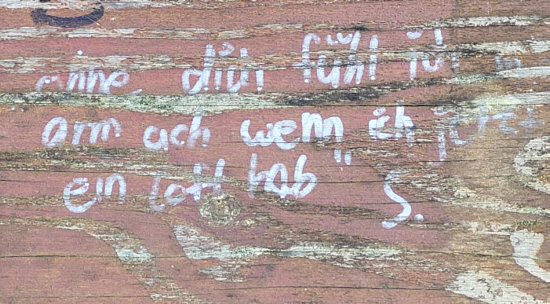 ohne dich fühl ich
arm auch wenn ich jetzt
ein Lott hab S.